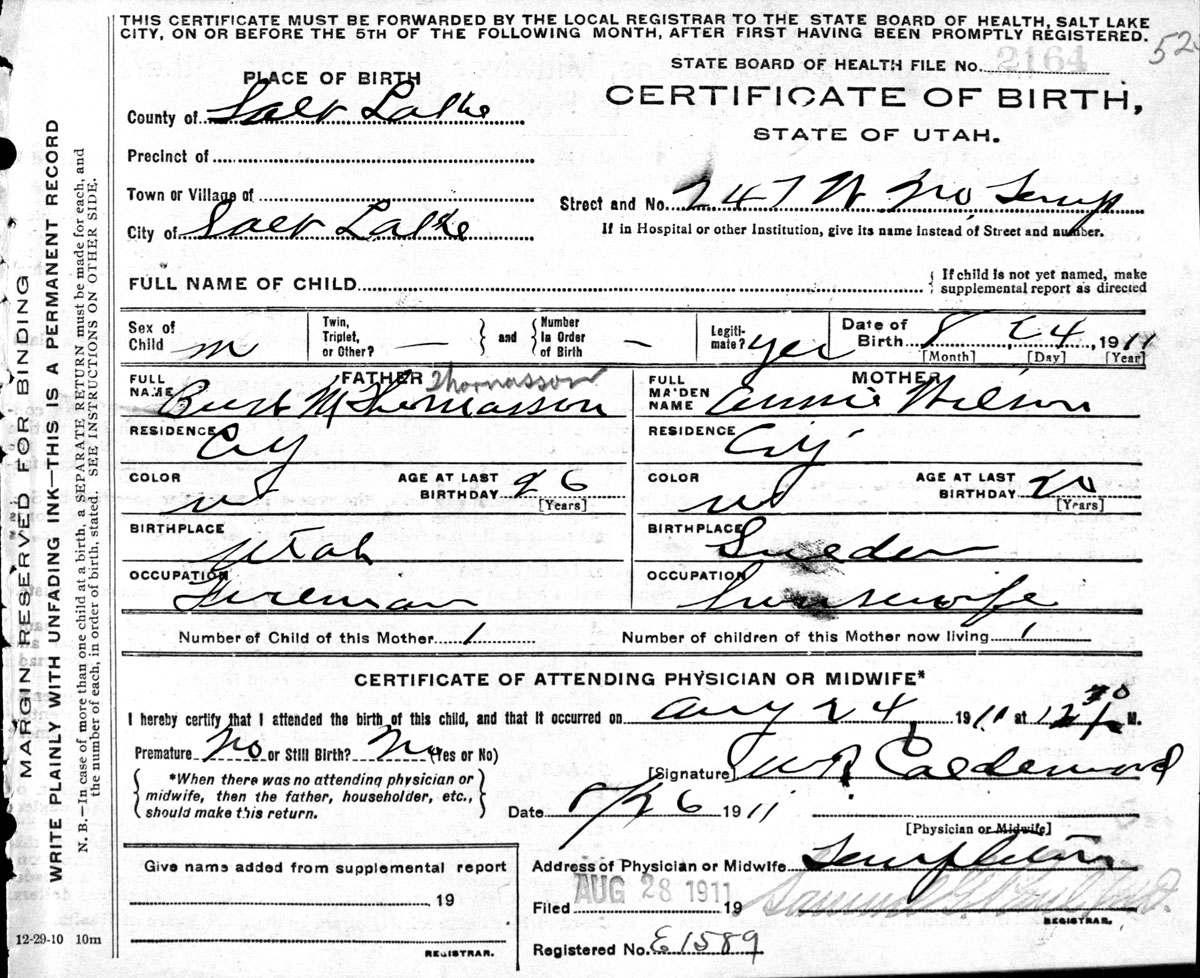 THIS CERTIFICATE MUST BE FORWARDED BY THE LOCAL REGISTRAR TO THE STATE BOARD OF HEALTH, SALT LAKE
CITY, ON OR BEFORE THE 5TH OF THE FOLLOWING MONTH, AFTER FIRST HAVING BEEN PROMPTLY REGISTERED.
52
PLACE OF BIRTH
STATE BOARD OF HEALTH FILE NO. 2164
County of Salt Lake
CERTIFICATE OF BIRTH,
STATE OF UTAH.
Precinct of
Town or Village of
Street and No. 247 W No, Temp
City of Salt Lake
If in Hospital or other Institution, give its name instead of Street and number.
FULL NAME OF CHILD
{ If child is not yet named, make
supplemental report as directed
Sex of Child m
Twin, Triplet, or Other? —
} and {
Number In Order of Birth —
Legiti-mate? yes
Date of Birth 8 24, 1911
[Month] [Day] [Year]
FATHER Thomasson
FULL NAME M Thomasson
RESIDENCE City
COLOR w
AGE AT LAST BIRTHDAY 26
[Years]
BIRTHPLACE Utah
OCCUPATION Fireman
MOTHER
FULL MAIDEN NAME Annie Wilson
RESIDENCE City
COLOR w
AGE AT LAST BIRTHDAY 20
[Years]
BIRTHPLACE Sweden
OCCUPATION housewife
Number of Child of this Mother 1 Number of children of this Mother now living 1
CERTIFICATE OF ATTENDING PHYSICIAN OR MIDWIFE*
I hereby certify that I attended the birth of this child, and that it occurred on Aug 24, 1911 at 12 30 M.
Premature No or Still Birth? No (Yes or No)
{ *When there was no attending physician or
midwife, then the father, householder, etc.,
should make this return. }
[Signature] W R Calderwood
Date 8/26 1911
[Physician or Midwife]
Give name added from supplemental report
19
REGISTRAR.
Address of Physician or Midwife Templeton
Filed AUG 28 1911 19
REGISTRAR.
Registered No. E1589
12-29-10 10m
MARGIN RESERVED FOR BINDING
WRITE PLAINLY WITH UNFADING INK—THIS IS A PERMANENT RECORD
N. B.—In case of more than one child at a birth, a SEPARATE RETURN must be made for each, and
the number of each, in order of birth, stated. SEE INSTRUCTIONS ON OTHER SIDE.